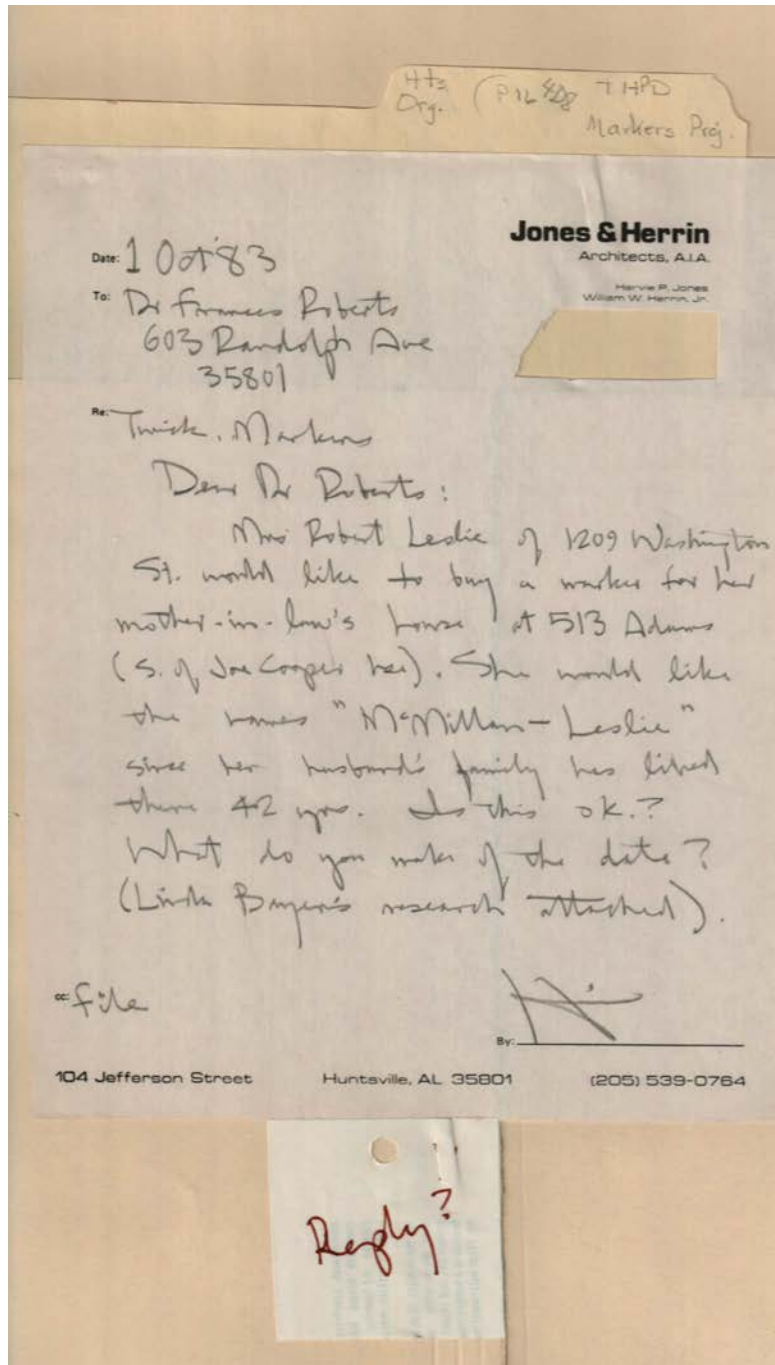 Hts
Org. (
THPD
Markers Proj.
Jones & Herrin
Architects, A.I.A.
Harvie P. Jones
William W. Herrin, Jr.
Date: 1 Oct '83
To: Dr Frances Roberts
603 Randolph Ave
35801
Re: Twick. Markers
Dear Dr Roberts:
Mrs Robert Leslie of 1209 Washington
St. would like to buy a marker for her
mother-in-law's house at 513 Adams
(S. of Joe Cooper hse). She would like
the names "McMillan-Leslie"
since her husband's family has lived
there 42 yrs. Is this ok.?
What do you make of the date?
(Linda Bayer's research attached).
cc: file
By:
104 Jefferson Street Huntsville, AL 35801 (205) 539-0764
Reply?